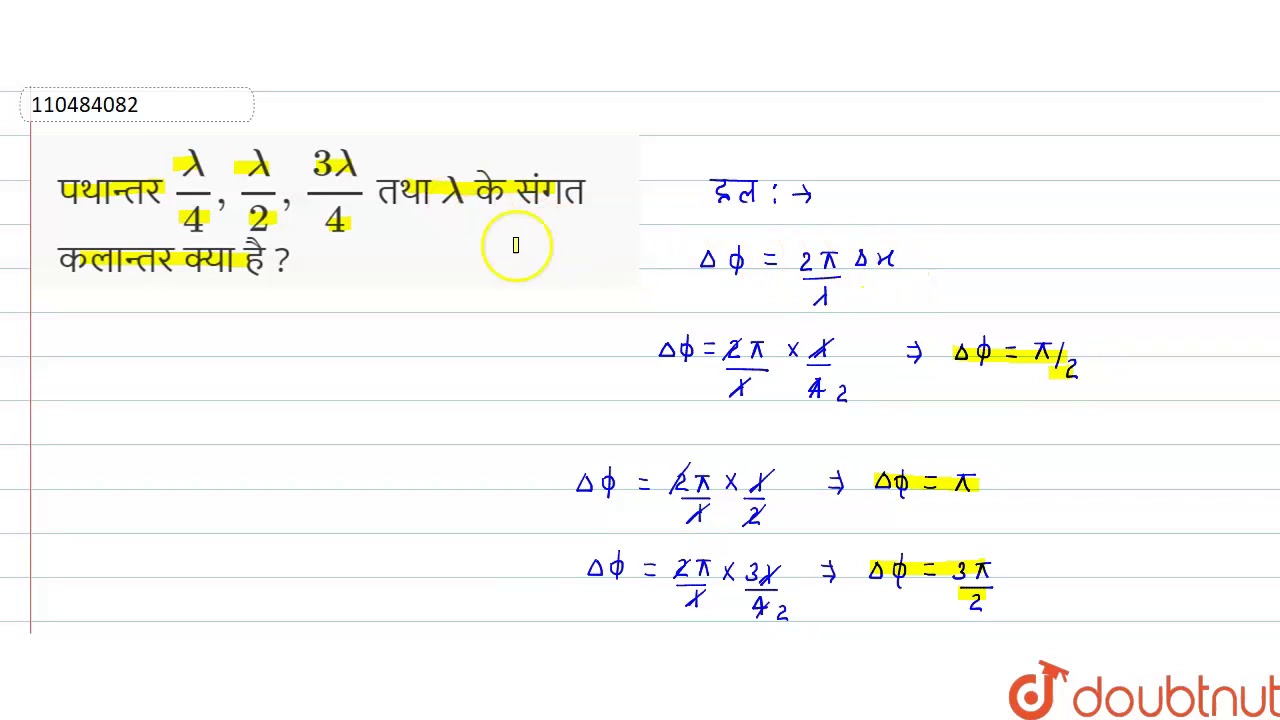 110484082
पथान्तर λ/4, λ/2, 3λ/4 तथा λ के संगत
कलान्तर क्या है ?
हल : →
Δϕ = 2π/λ Δx
Δϕ = 2π/λ × λ/4 2 ⇒ Δϕ = π/2
Δϕ = 2π/λ × λ/2 ⇒ Δϕ = π
Δϕ = 2π/λ × 3λ/4 2 ⇒ Δϕ = 3π/2
doubtnut